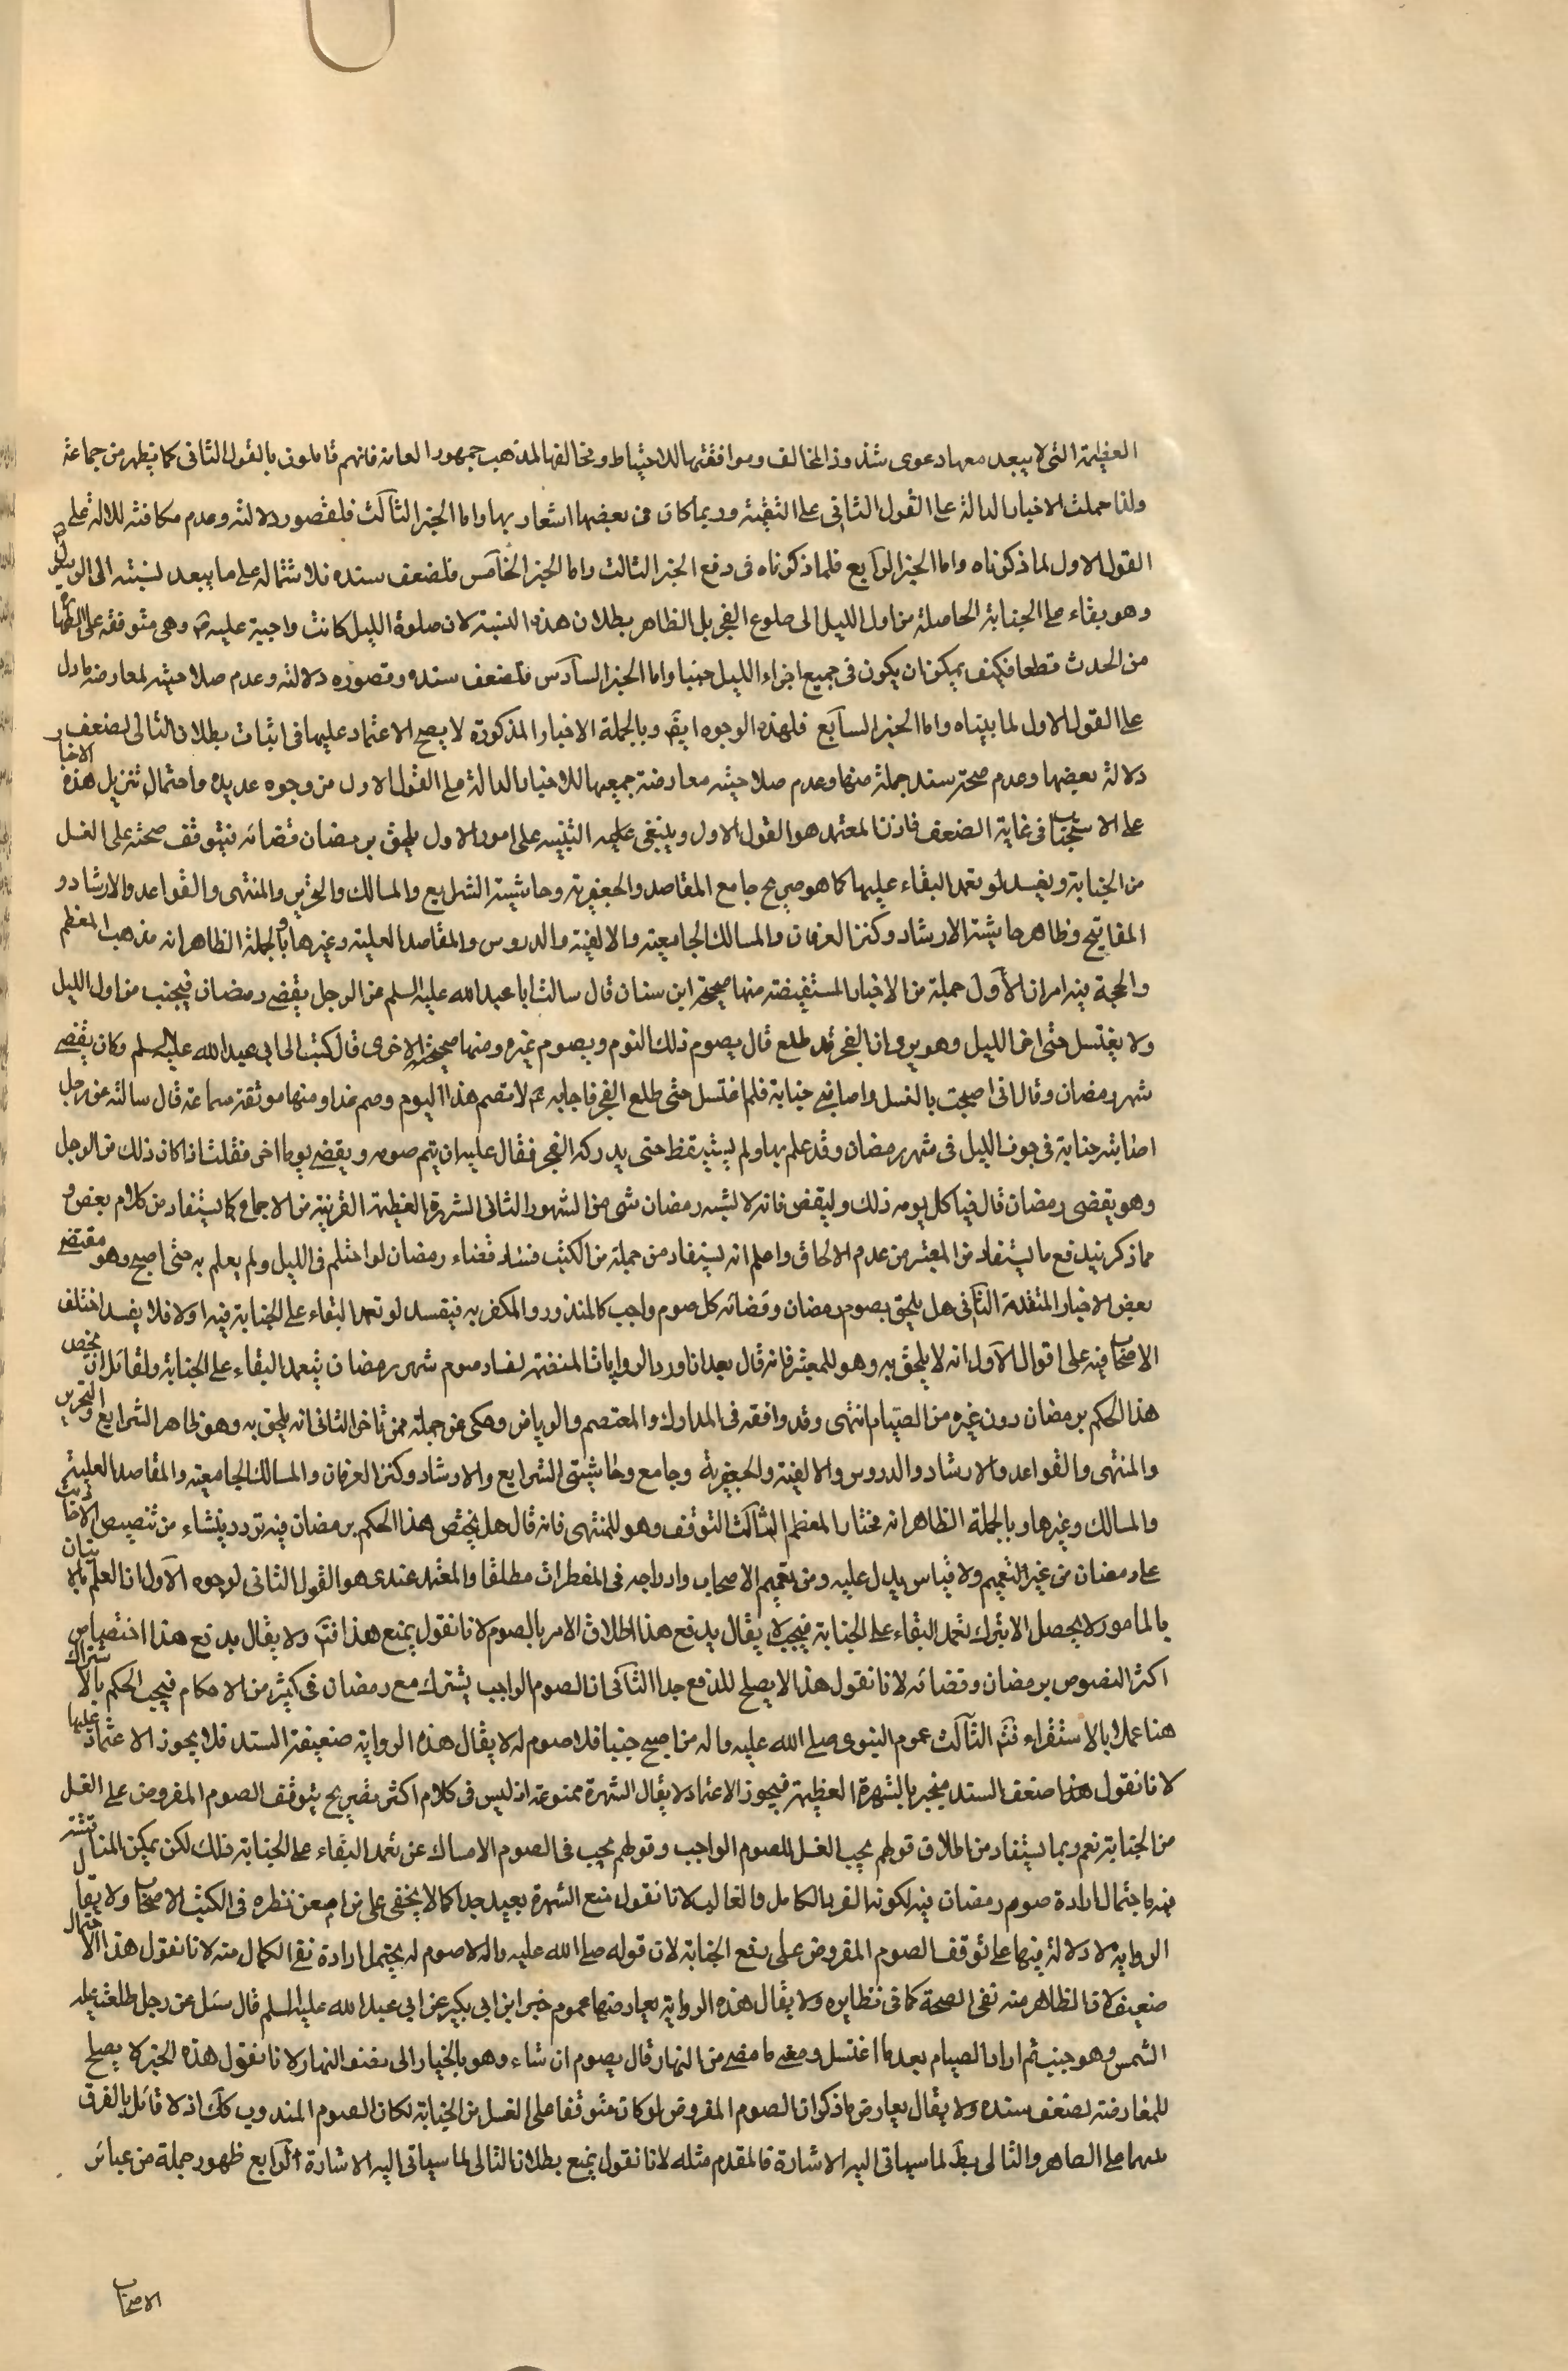 العظيمة التي لا يبعد معها دعوى شذوذ المخالف وموافقتها للاحتياط ومخالفها لمذهب جمهور العامة فانهم قائلون بالقول الثاني كما يظهر من جماعة
ولذا حملت الاخبار الدالة على القول الثاني على التقية وربما كان في بعضها اشعار بها واما الخبر الثالث فلقصور دلالته وعدم مكافئته للدالة على
القول الاول لما ذكرناه واما الخبر الرابع فلما ذكرناه في دفع الخبر الثالث واما الخبر الخامس فلضعف سنده فلاشتماله على ما يبعد نسبته الى الرسول
وهو بقاء على الجنابة الحاصلة من اول الليل الى طلوع الفجر بل الظاهر بطلان هذه النسبة لان صلوة الليل كانت واجبة عليه ص وهي متوقفه على الطهارة
من الحدث قطعا فكيف يمكن ان يكون في جميع اجزاء الليل جنبا واما الخبر السادس فلضعف سنده وقصوره دلالته وعدم صلاحيته لمعارضة ما دل
على القول الاول لما بيناه واما الخبر السابع فلهذه الوجوه ايضا وبالجملة الاخبار المذكورة لا يصح الاعتماد عليها في اثبات بطلان التالي لضعف
دلالة بعضها وعدم صحة سند جملة منها وعدم صلاحيته معارضة جميعها للاخبار الدالة على القول الاول من وجوه عديدة واحتمال تنزيل هذه الاخبار
على الاستحباب في غاية الضعف فاذن المعتمد هو القول الاول وينبغي التنبيه على امور الاول يلحق برمضان قضائه فيتوقف صحته على الغسل
من الجنابة ويفسد لو تعمد البقاء عليها كما هو صريح جامع المقاصد والجعفرية وحاشية الشرايع والمسالك والتحرير والمنتهى والقواعد والارشاد و
المفاتيح وظاهر حاشية الارشاد وكنز العرفان والمسالك الجامعية والالفية والدروس والمقاصد العلية وغيرها وبالجملة الظاهر انه مذهب المعظم
والحجة فيه امران الاول جملة من الاخبار المستفيضة منها صحيحة ابن سنان قال سالت ابا عبد الله عليه السلم من الرجل يقضي رمضان فيجنب من اول الليل
ولا يغتسل حتى اخر الليل وهو يرى ان الفجر قد طلع قال يصوم ذلك اليوم ويصوم غيره ومنها صحيحته الاخرى قال كتب الى ابي عبد الله عليه السلم وكان يقضي
شهر رمضان وقال اني اصبحت بالغسل واصابني جنابة فلم اغتسل حتى طلع الفجر فاجابه ع لا تصم هذا اليوم وصم غدا ومنها موثقة سماعة قال سالته عن رجل
اصابته جنابة في جوف الليل في شهر رمضان وقد علم بها ولم يستيقظ حتى يدركه الفجر فقال عليه ان يتم صومه ويقضي يوما اخر فقلت اذا كان ذلك من الرجل
وهو يقضي رمضان قال فياكل يومه ذلك وليقض فانه لا يشبه رمضان شئ من الشهور الثاني الشهرة العظيمة القريبة من الاجماع كما يستفاد من كلام بعض و
مما ذكر يندفع ما يستفاد من المعتبر من عدم الالحاق واعلم انه يستفاد من جملة من الكتب فساد قضاء رمضان لو احتلم في الليل ولم يعلم به حتى اصبح وهو مقتضى
بعض الاخبار المتقدمة الثاني هل يلحق بصوم رمضان وقضائه كل صوم واجب كالمنذور والمكفر به فيفسد لو تعمد البقاء على الجنابة فيه اولا فلا يفسد اختلف
الاصحاب فيه على اقوال الاول انه لا يلحق به وهو للمعتبر فانه قال بعد ان اورد الروايات المتضمنة لفساد صوم شهر رمضان بتعمد البقاء على الجنابة ولقائل ان يخص
هذا الحكم برمضان دون غيره من الصيام انتهى وقد وافقه في المدارك والمعتصم والرياض وحكى عن جملة ممن تاخر الثاني انه يلحق به وهو ظاهر الشرايع والتحرير
والمنتهى والقواعد والارشاد والدروس والالفية والجعفرية وجامع وحاشيتي الشرايع والارشاد وكنز العرفان والمسالك الجامعية والمقاصد العلية
والمسالك وغيرها وبالجملة الظاهر انه مختار المعظم الثالث التوقف وهو للمنتهى فانه قال هل يختص هذا الحكم برمضان فيه تردد ينشاء من تنصيص الاحاديث
على رمضان من غير التعميم ولا قياس يدل عليه ومن تعميم الاصحاب وادراجه في المفطرات مطلقا والمعتمد عندي هو القول الثاني لوجوه الاول ان العلم بالاتيان
بالمامور لا يحصل الا بترك تعمد البقاء على الجنابة فيجب لا يقال يدفع هذا اطلاق الامر بالصوم لانا نقول يمنع هذا فتم ولا يقال يدفع هذا اختصاص
اكثر النصوص برمضان وقضائه لانا نقول هذا لا يصلح للدفع جدا الثاني ان الصوم الواجب يشترك مع رمضان في كثير من الاحكام فيجب الحكم بالاشتراك
هنا عملا بالاستقراء فتم الثالث عموم النبوي صلى الله عليه واله من اصبح جنبا فلا صوم له لا يقال هذه الرواية ضعيفة السند فلا يجوز الاعتماد عليها
لانا نقول هذا ضعف السند منجبر بالشهرة العظيمة فيجوز الاعتماد لا يقال الشهرة ممنوعة اذ ليس في كلام اكثر تصريح بتوقف الصوم المفروض على الغسل
من الجنابة نعم ربما يستفاد من اطلاق قولهم يجب الغسل للصوم الواجب وقولهم يجب في الصوم الامساك عن تعمد البقاء على الجنابة ذلك لكن يمكن المناقشة
فيه باحتمال ارادة صوم رمضان فيه لكونه الفرد الكامل والغالب لانا نقول منع الشهرة بعيد جدا كما لا يخفى على من امعن نظره في الكتب الاصحاب ولا يقال
الرواية لا دلالة فيها على توقف الصوم المفروض على رفع الجنابة لان قوله صلى الله عليه واله لا صوم له يحتمل ارادة نفي الكمال منه لانا نقول هذا الاحتمال
ضعيف لان الظاهر منه نفي الصحة كما في نظايره ولا يقال هذه الرواية يعارضها عموم خبر ابن ابي بكير عن ابي عبد الله عليه السلم قال سئل عن رجل طلعت عليه
الشمس وهو جنب ثم اراد الصيام بعد ما اغتسل ومضى ما مضى من النهار قال يصوم ان شاء وهو بالخيار الى نصف النهار لانا نقول هذه الخبر لا يصلح
للمعارضة لضعف سنده ولا يقال يعارض ما ذكر ان الصوم المفروض لو كان متوقفا على الغسل من الجنابة لكان الصوم المندوب كك اذ لا قائل بالفرق
بينهما على الظاهر والتالي بط لما سياتي اليه الاشارة فالمقدم مثله لانا نقول يمنع بطلان التالي لما سياتي اليه الاشارة الرابع ظهور جملة من عبائر
الاصحاب